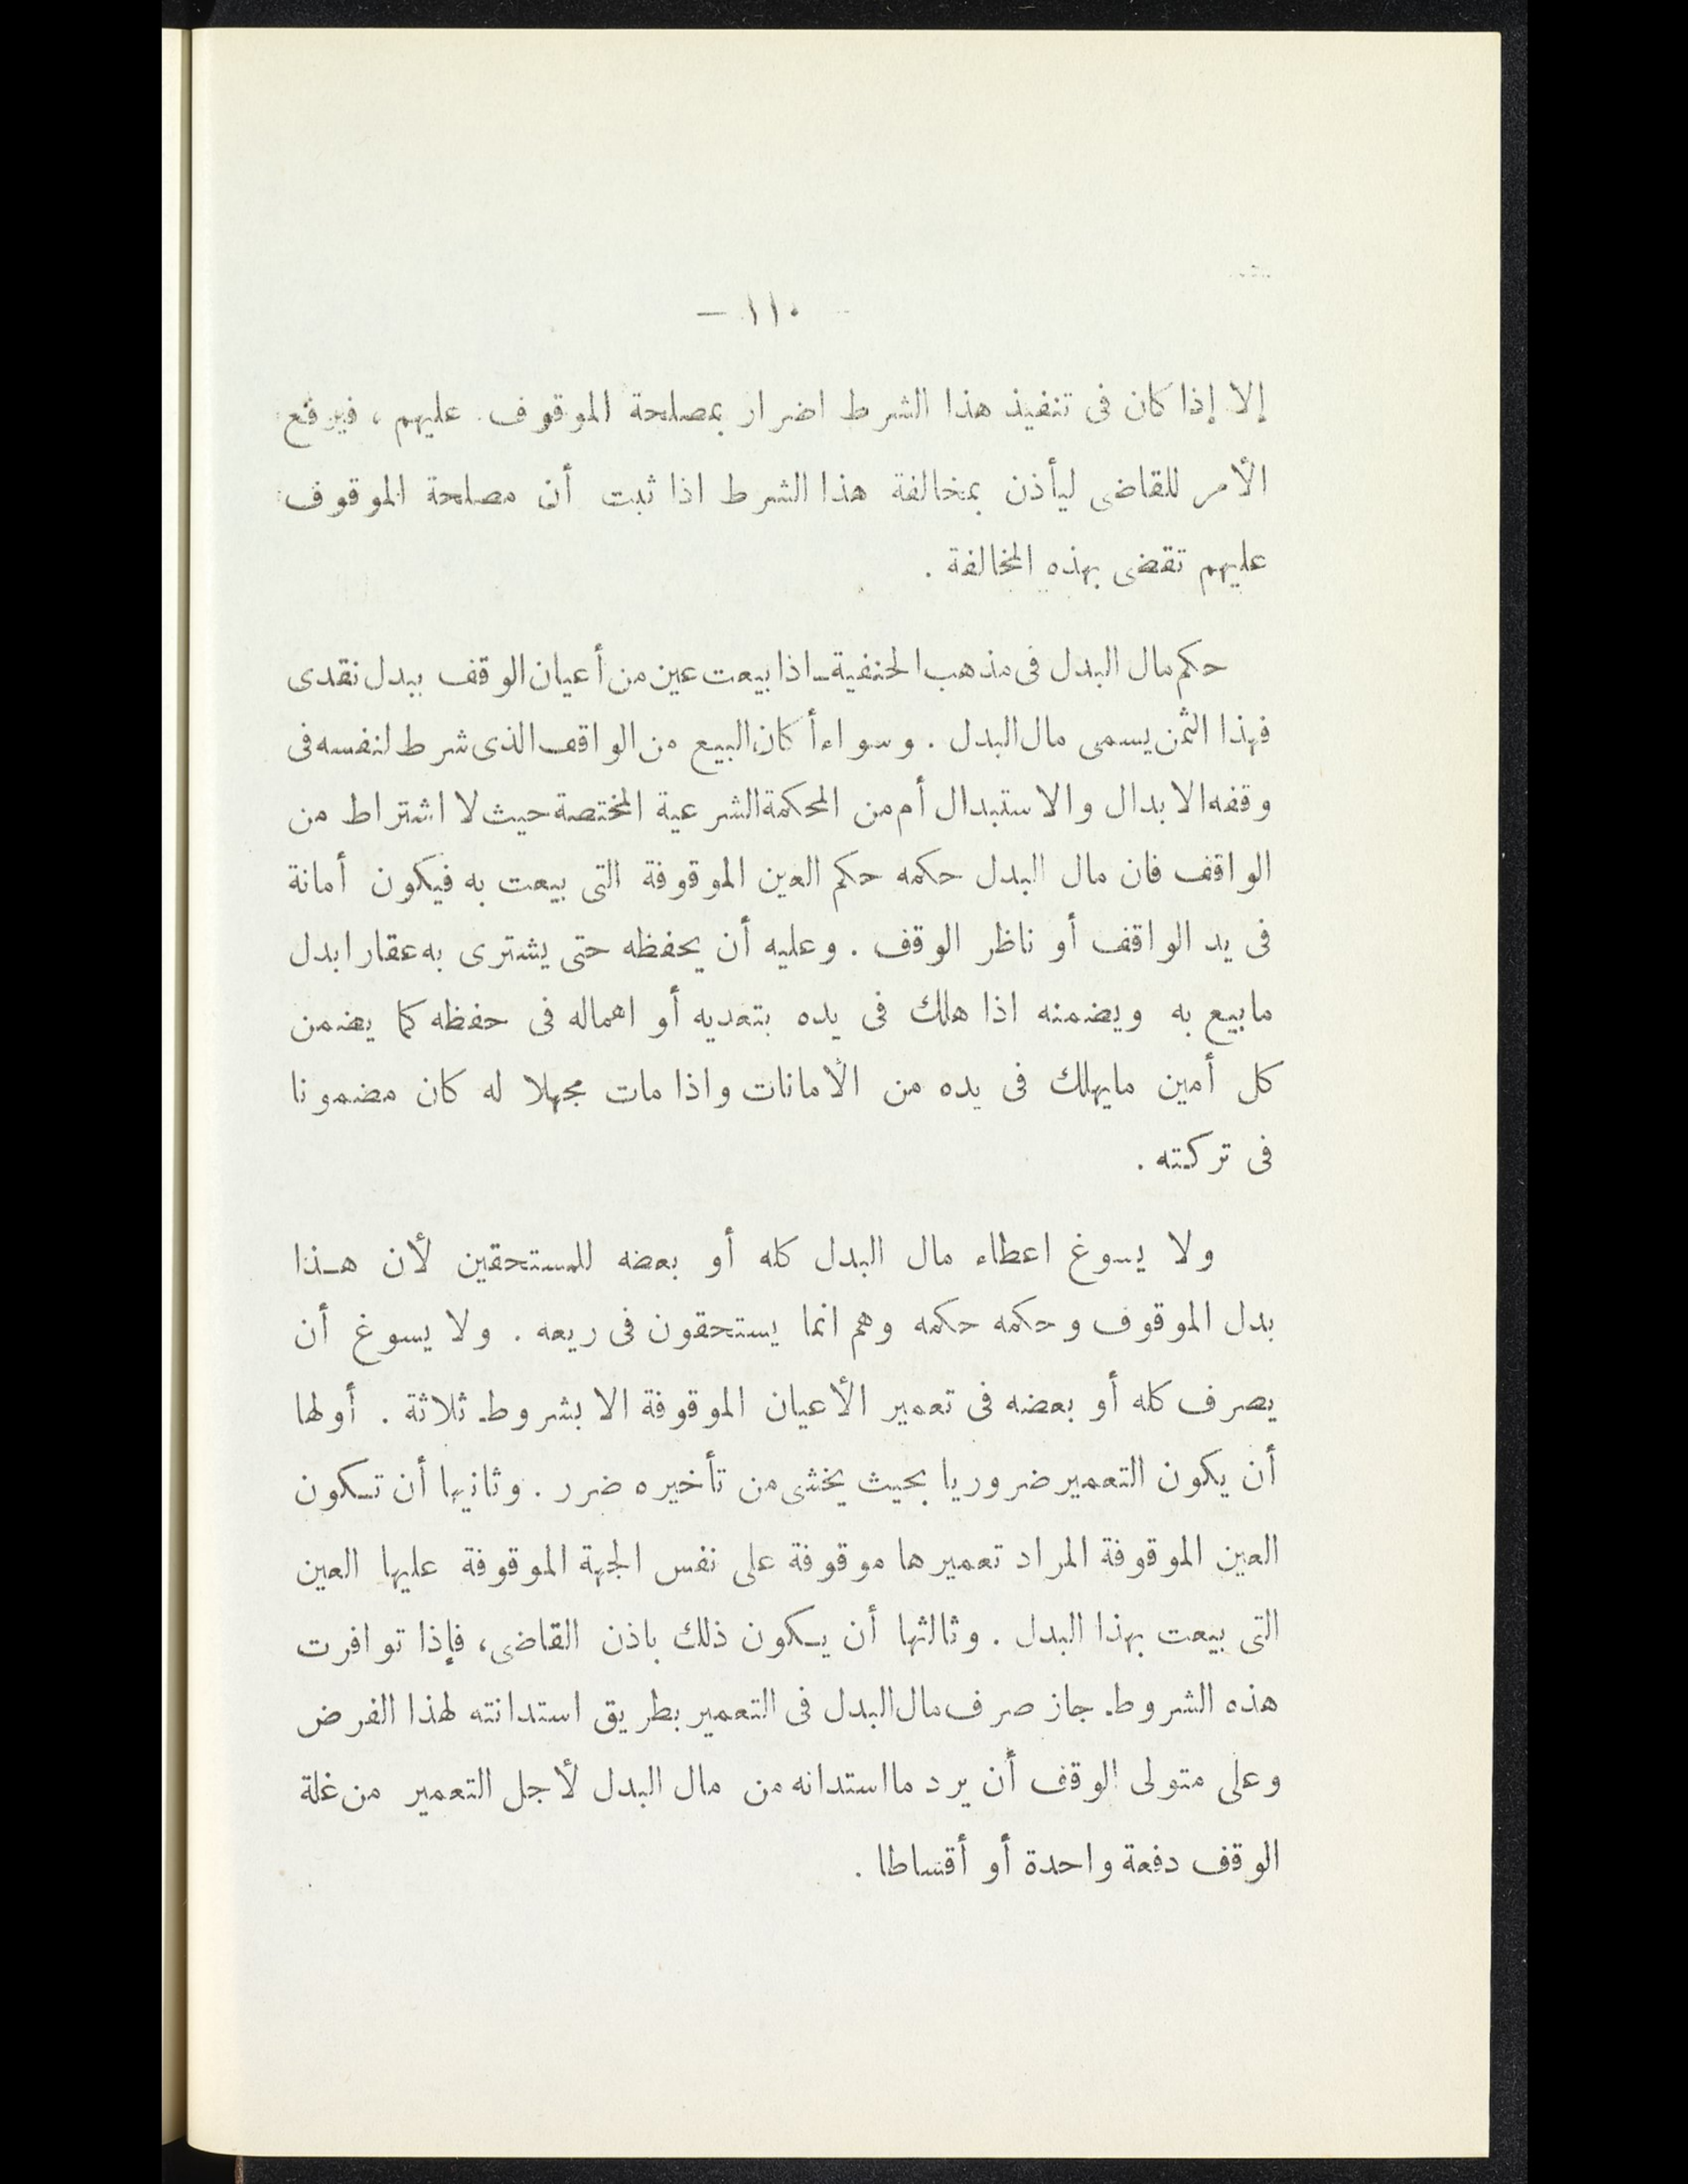 — ١١٠ —
إلا إذا كان فى تنفيذ هذا الشرط اضرار بمصلحة الموقوف عليهم ، فيرفع
الأمر للقاضى ليأذن بمخالفة هذا الشرط اذا ثبت أن مصلحة الموقوف
عليهم تقضى بهذه المخالفة .
حكم مال البدل فى مذهب الحنفية ـ اذا بيعت عين من أعيان الوقف ببدل نقدى
فهذا الثمن يسمى مال البدل . وسواء أكان البيع من الواقف الذى شرط لنفسه فى
وقفه الابدال والاستبدال أم من المحكمة الشرعية المختصة حيث لا اشتراط من
الواقف فان مال البدل حكمه حكم العين الموقوفة التى بيعت به فيكون أمانة
فى يد الواقف أو ناظر الوقف . وعليه أن يحفظه حتى يشترى به عقارا بدل
مابيع به ويضمنه اذا هلك فى يده بتعديه أو اهماله فى حفظه كما يضمن
كل أمين مايهلك فى يده من الأمانات واذا مات مجهلا له كان مضمونا
فى تركته .
ولا يسوغ اعطاء مال البدل كله أو بعضه للمستحقين لأن هـذا
بدل الموقوف وحكمه حكمه وهم انما يستحقون فى ريعه . ولا يسوغ أن
يصرف كله أو بعضه فى تعمير الأعيان الموقوفة الا بشروط ثلاثة . أولها
أن يكون التعمير ضروريا بحيث يخشى من تأخيره ضرر . وثانيها أن تـكون
العين الموقوفة المراد تعميرها موقوفة على نفس الجهة الموقوفة عليها العين
التى بيعت بهذا البدل . وثالثها أن يـكون ذلك باذن القاضى، فإذا توافرت
هذه الشروط جاز صرف مال البدل فى التعمير بطريق استدانته لهذا الفرض
وعلى متولى الوقف أن يرد مااستدانه من مال البدل لأجل التعمير من غلة
الوقف دفعة واحدة أو أقساطا .